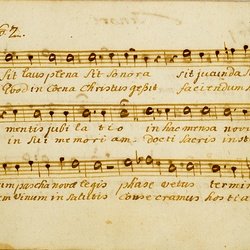 No 2.
Sit laus plena Sit Sonora Sit jucunda
Quod in Coena Christus gessit faciendum
mentis jubilatio in hac mensa novi
in sui memoriam. docti sacris inst
um pascha novae legis phase vetus termi
em Vinum in salutis Consecramus hostia